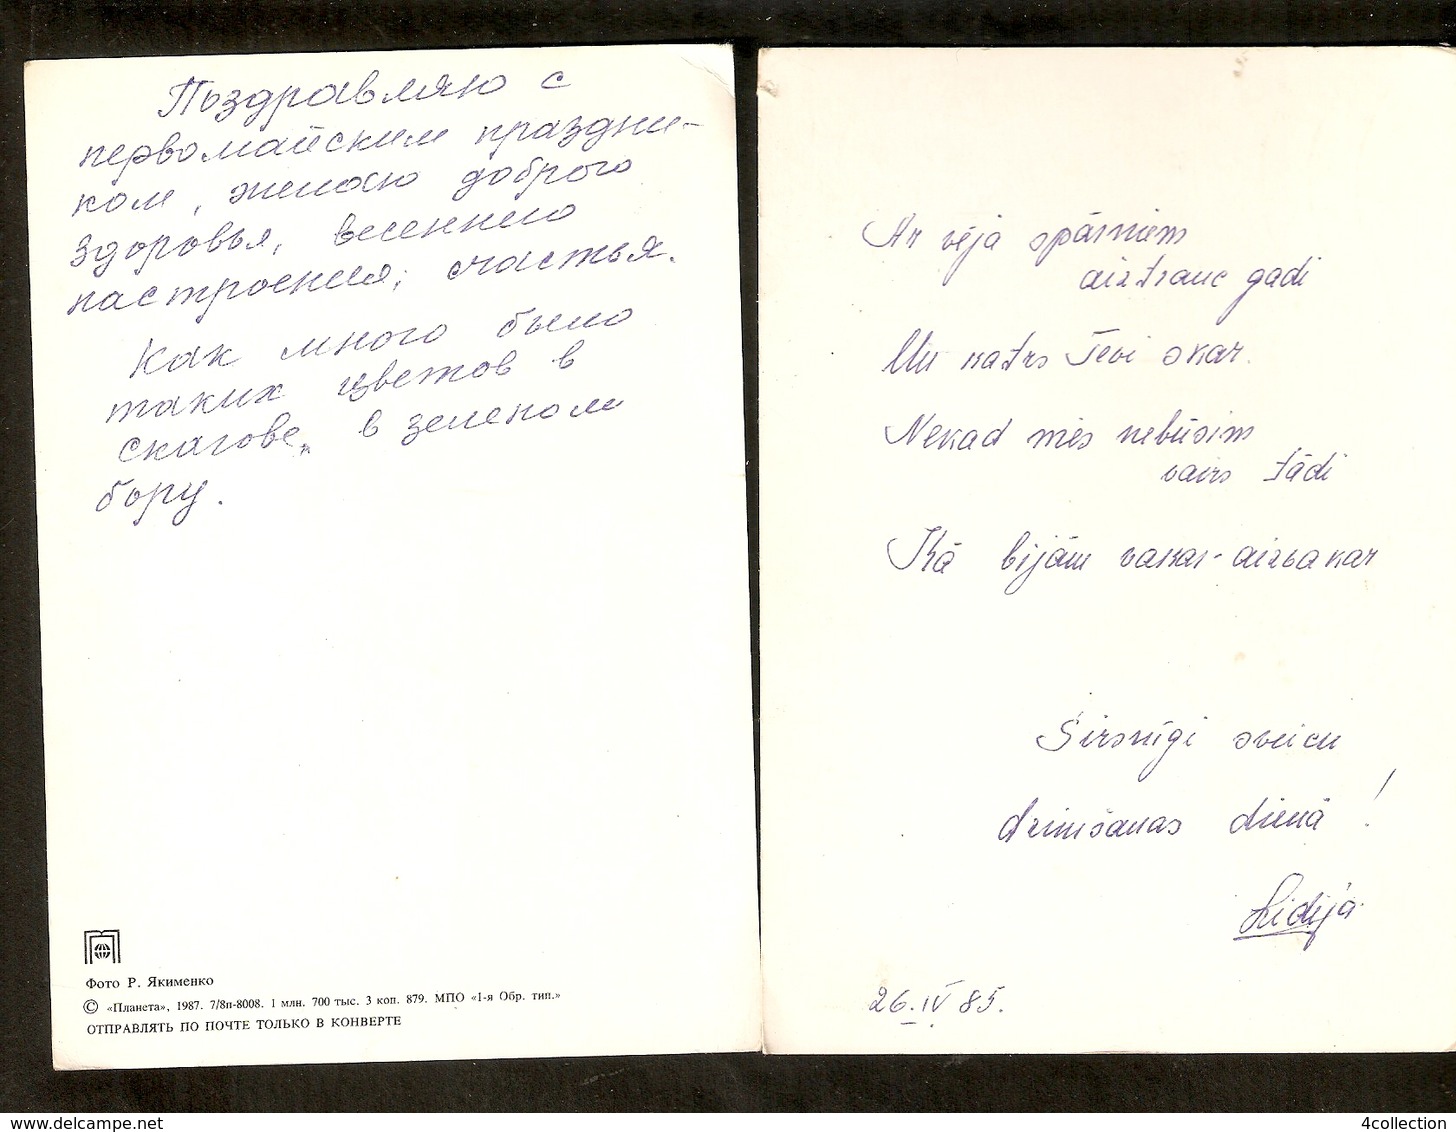 Поздравляю с
первомайским праздни-
ком, желаю доброго
здоровья, весеннего
настроения, счастья.
Как много было
таких цветов в
в зеленом
бору.
Фото Р. Якименко
© «Планета», 1987. 7/8п-8008. 1 млн. 700 тыс. 3 коп. 879. МПО «1-я Обр. тип.»
ОТПРАВЛЯТЬ ПО ПОЧТЕ ТОЛЬКО В КОНВЕРТЕ
Ar vēja spārniem
aiztrauc gadi
Un katrs Tevi skar.
Nekad mēs nebūsim
vairs tādi
Kā bijām vakar-aizvakar
Sirsnīgi sveicu
dzimšanas dienā!
Lidija
26.IV 85.
www.delcampe.net
4collection